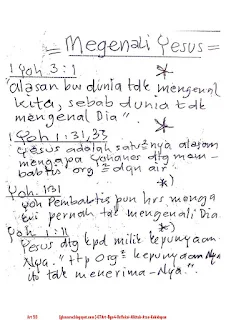 = Megenali Yesus =
1 Yoh 3:1
"alasan bw dunia tdk mengenal
kita, sebab dunia tdk
mengenal Dia".
1 Yoh 1:31,33
Yesus adalah satu²nya alasan
mengapa Yohanes dtg mem-
babtis org² dgn air. *)
Yoh. 1:31
Yoh Pembaktis pun hrs menga
kui pernah tdk mengenali Dia.
Yoh 1:11
Yesus dtg kpd milik kepunyaan
Nya. "ttp org² kepunyaan Nya
itu tdk menerima-Nya".